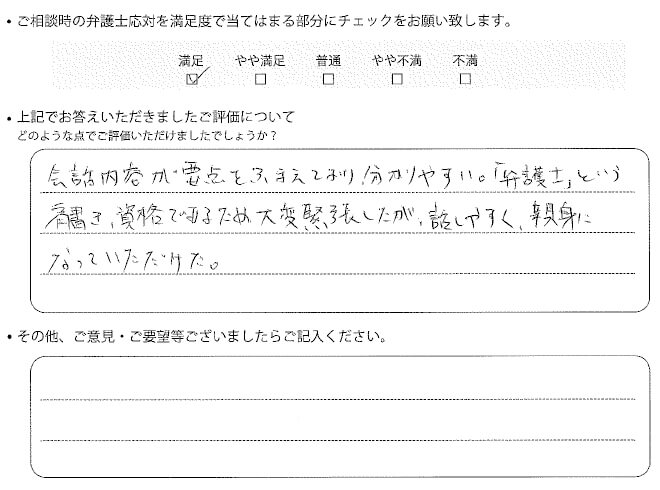 • ご相談時の弁護士応対を満足度で当てはまる部分にチェックをお願い致します。
満足 やや満足 普通 やや不満 不満
☑ ☐ ☐ ☐ ☐
• 上記でお答えいただきましたご評価について
どのような点でご評価いただけましたでしょうか？
会話内容が要点をふまえており、分かりやすい。「弁護士」という
肩書き、資格であるため大変緊張したが、話しやすく、親身に
なっていただけた。
• その他、ご意見・ご要望等ございましたらご記入ください。